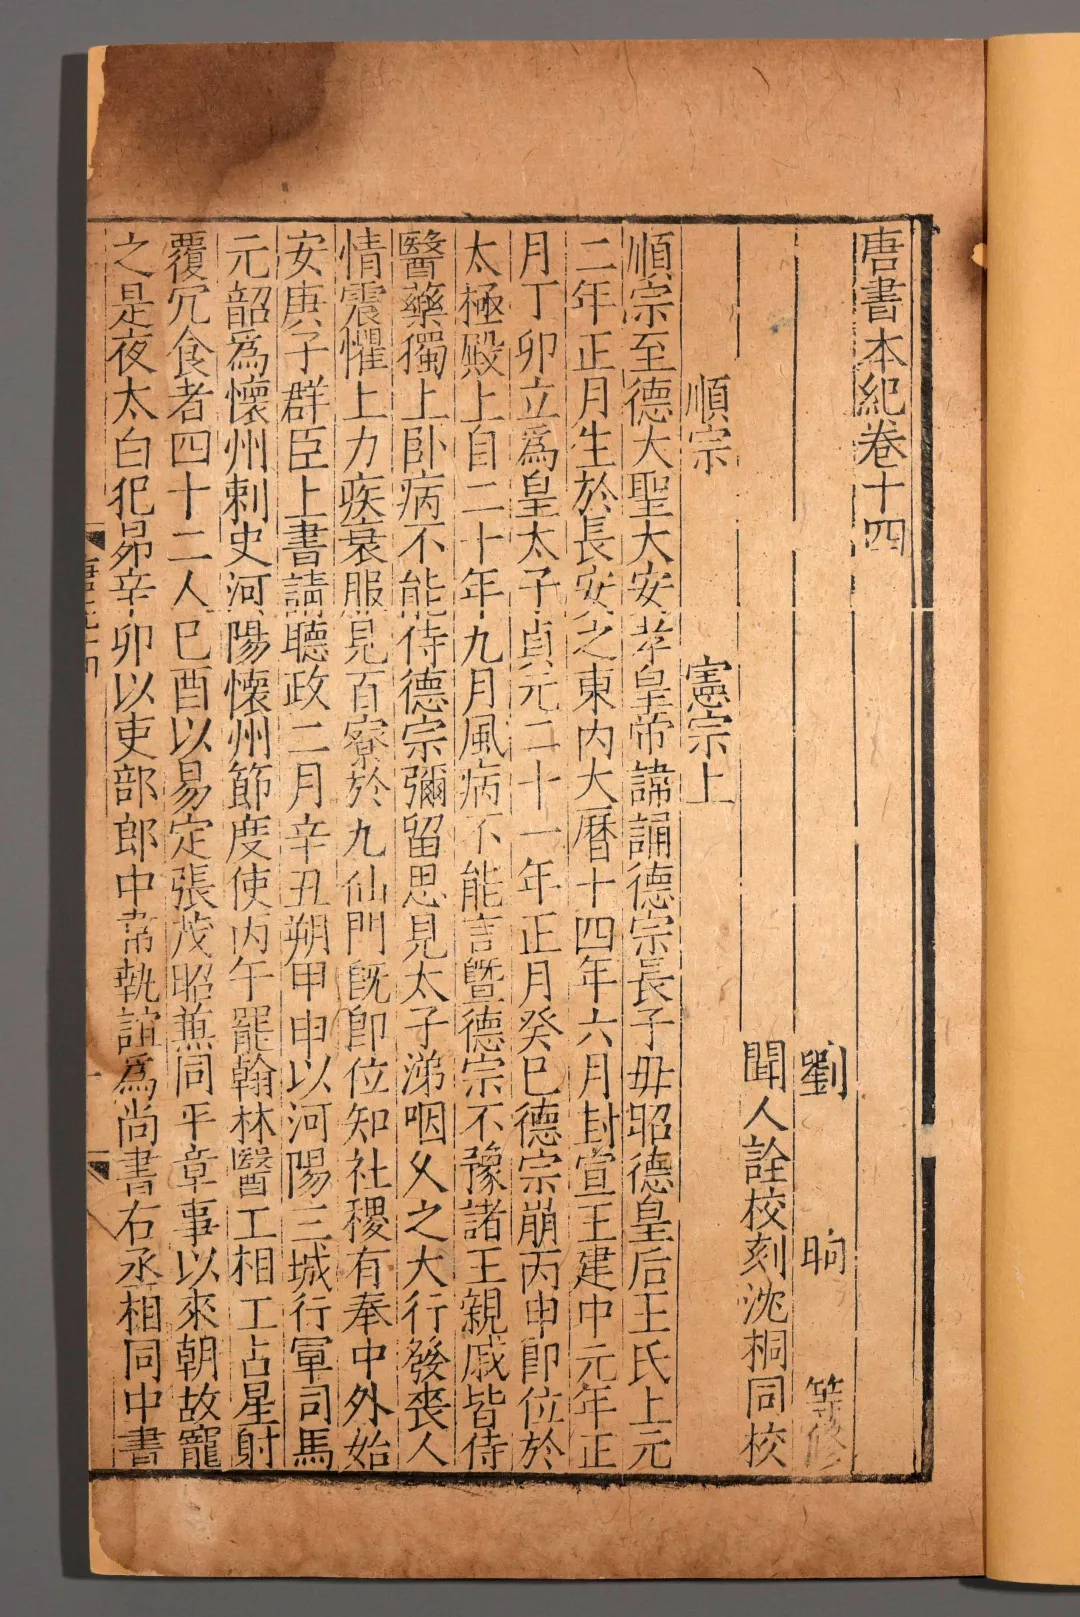 唐書本紀卷十四
劉昫等修
聞人詮校刻沈桐同校
順宗 憲宗上
順宗至德大聖大安孝皇帝諱誦德宗長子毋昭德皇后王氏上元
二年正月生於長安之東內大曆十四年六月封宣王建中元年正
月丁卯立爲皇太子貞元二十一年正月癸巳德宗崩丙申卽位於
太極殿上自二十年九月風病不能言曁德宗不豫諸王親戚皆侍
醫藥獨上臥病不能侍德宗彌留思見太子涕咽久之大行發喪人
情震懼上力疾衰服見百寮於九仙門旣卽位知社稷有奉中外始
安庚子群臣上書請聽政二月辛丑朔甲申以河陽三城行軍司馬
元韶爲懷州刺史河陽懷州節度使丙午罷翰林醫工相工占星射
覆冗食者四十二人巳酉以易定張茂昭兼同平章事以來朝故寵
之是夜太白犯昴辛卯以吏部郎中韋執誼爲尚書右丞相同中書